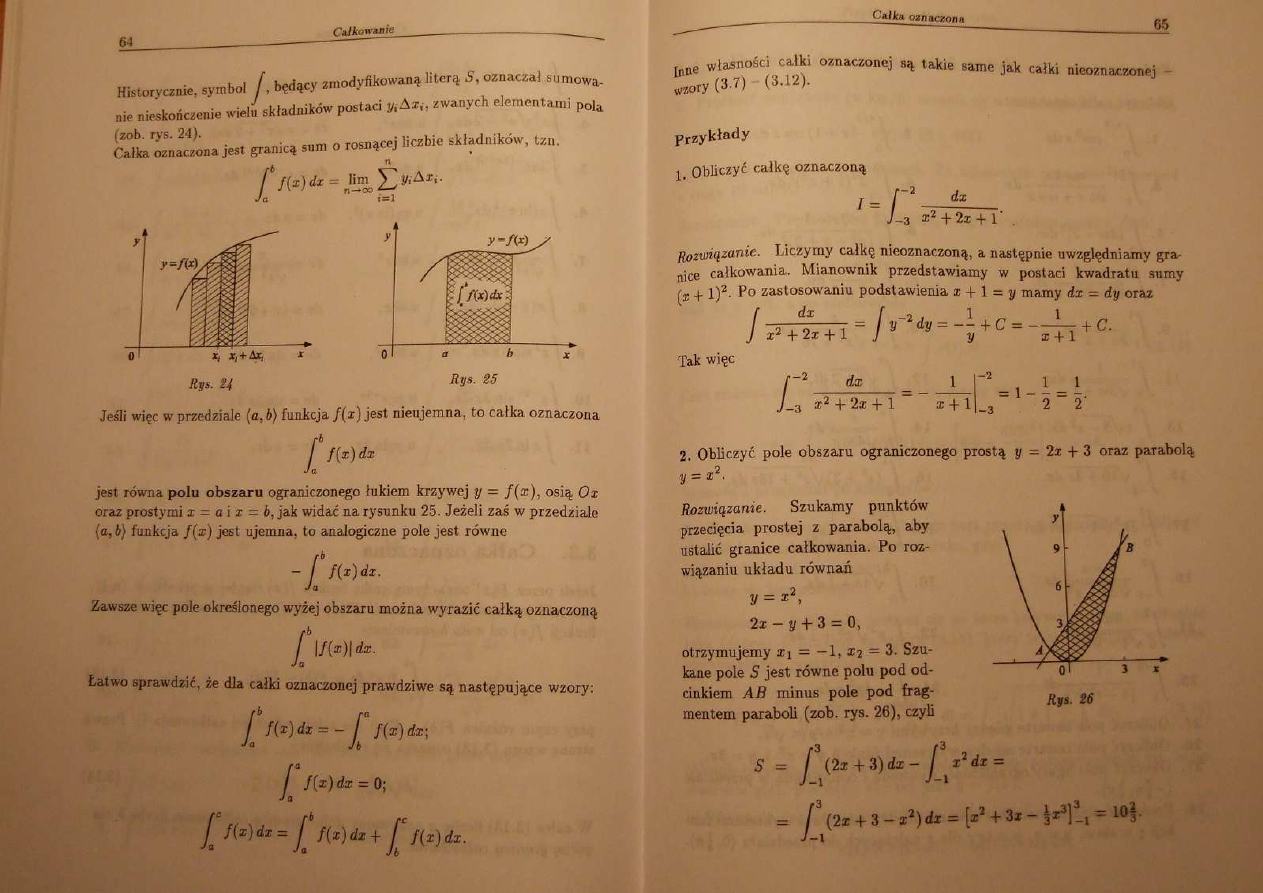 64
Całkowanie
Historycznie, symbol ∫, będący zmodyfikowaną literą S, oznaczał sumowa-
nie nieskończenie wielu składników postaci yᵢΔxᵢ, zwanych elementami pola
(zob. rys. 24).
Całka oznaczona jest granicą sum o rosnącej liczbie składników, tzn.
∫_a^b f(x) dx = lim_{n→∞} ∑_{i=1}^n yᵢΔxᵢ.
y
y=f(x)
0
xᵢ xᵢ+Δxᵢ
x
Rys. 24
y
y=f(x)
∫_a^b f(x)dx
0
a
b
x
Rys. 25
Jeśli więc w przedziale ⟨a, b⟩ funkcja f(x) jest nieujemna, to całka oznaczona
∫_a^b f(x) dx
jest równa polu obszaru ograniczonego łukiem krzywej y = f(x), osią Ox
oraz prostymi x = a i x = b, jak widać na rysunku 25. Jeżeli zaś w przedziale
⟨a, b⟩ funkcja f(x) jest ujemna, to analogiczne pole jest równe
− ∫_a^b f(x) dx.
Zawsze więc pole określonego wyżej obszaru można wyrazić całką oznaczoną
∫_a^b |f(x)| dx.
Łatwo sprawdzić, że dla całki oznaczonej prawdziwe są następujące wzory:
∫_a^b f(x) dx = − ∫_b^a f(x) dx;
∫_a^a f(x) dx = 0;
∫_a^c f(x) dx = ∫_a^b f(x) dx + ∫_b^c f(x) dx.
Całka oznaczona
65
Inne własności całki oznaczonej są takie same jak całki nieoznaczonej –
wzory (3.7) – (3.12).
Przykłady
1. Obliczyć całkę oznaczoną
I = ∫_{-3}^{-2} dx / (x² + 2x + 1).
Rozwiązanie. Liczymy całkę nieoznaczoną, a następnie uwzględniamy gra-
nice całkowania. Mianownik przedstawiamy w postaci kwadratu sumy
(x + 1)². Po zastosowaniu podstawienia x + 1 = y mamy dx = dy oraz
∫ dx / (x² + 2x + 1) = ∫ y⁻² dy = −1/y + C = −1/(x + 1) + C.
Tak więc
∫_{-3}^{-2} dx / (x² + 2x + 1) = − 1/(x + 1) |_{-3}^{-2} = 1 − 1/2 = 1/2.
2. Obliczyć pole obszaru ograniczonego prostą y = 2x + 3 oraz parabolą
y = x².
Rozwiązanie. Szukamy punktów
przecięcia prostej z parabolą, aby
ustalić granice całkowania. Po roz-
wiązaniu układu równań
y = x²,
2x − y + 3 = 0,
otrzymujemy x₁ = −1, x₂ = 3. Szu-
kane pole S jest równe polu pod od-
cinkiem AB minus pole pod frag-
mentem paraboli (zob. rys. 26), czyli
y
9
B
6
3
A
0
3
x
Rys. 26
S = ∫_{-1}^3 (2x + 3) dx − ∫_{-1}^3 x² dx =
= ∫_{-1}^3 (2x + 3 − x²) dx = [x² + 3x − ⅓x³]_{-1}^3 = 10⅔.